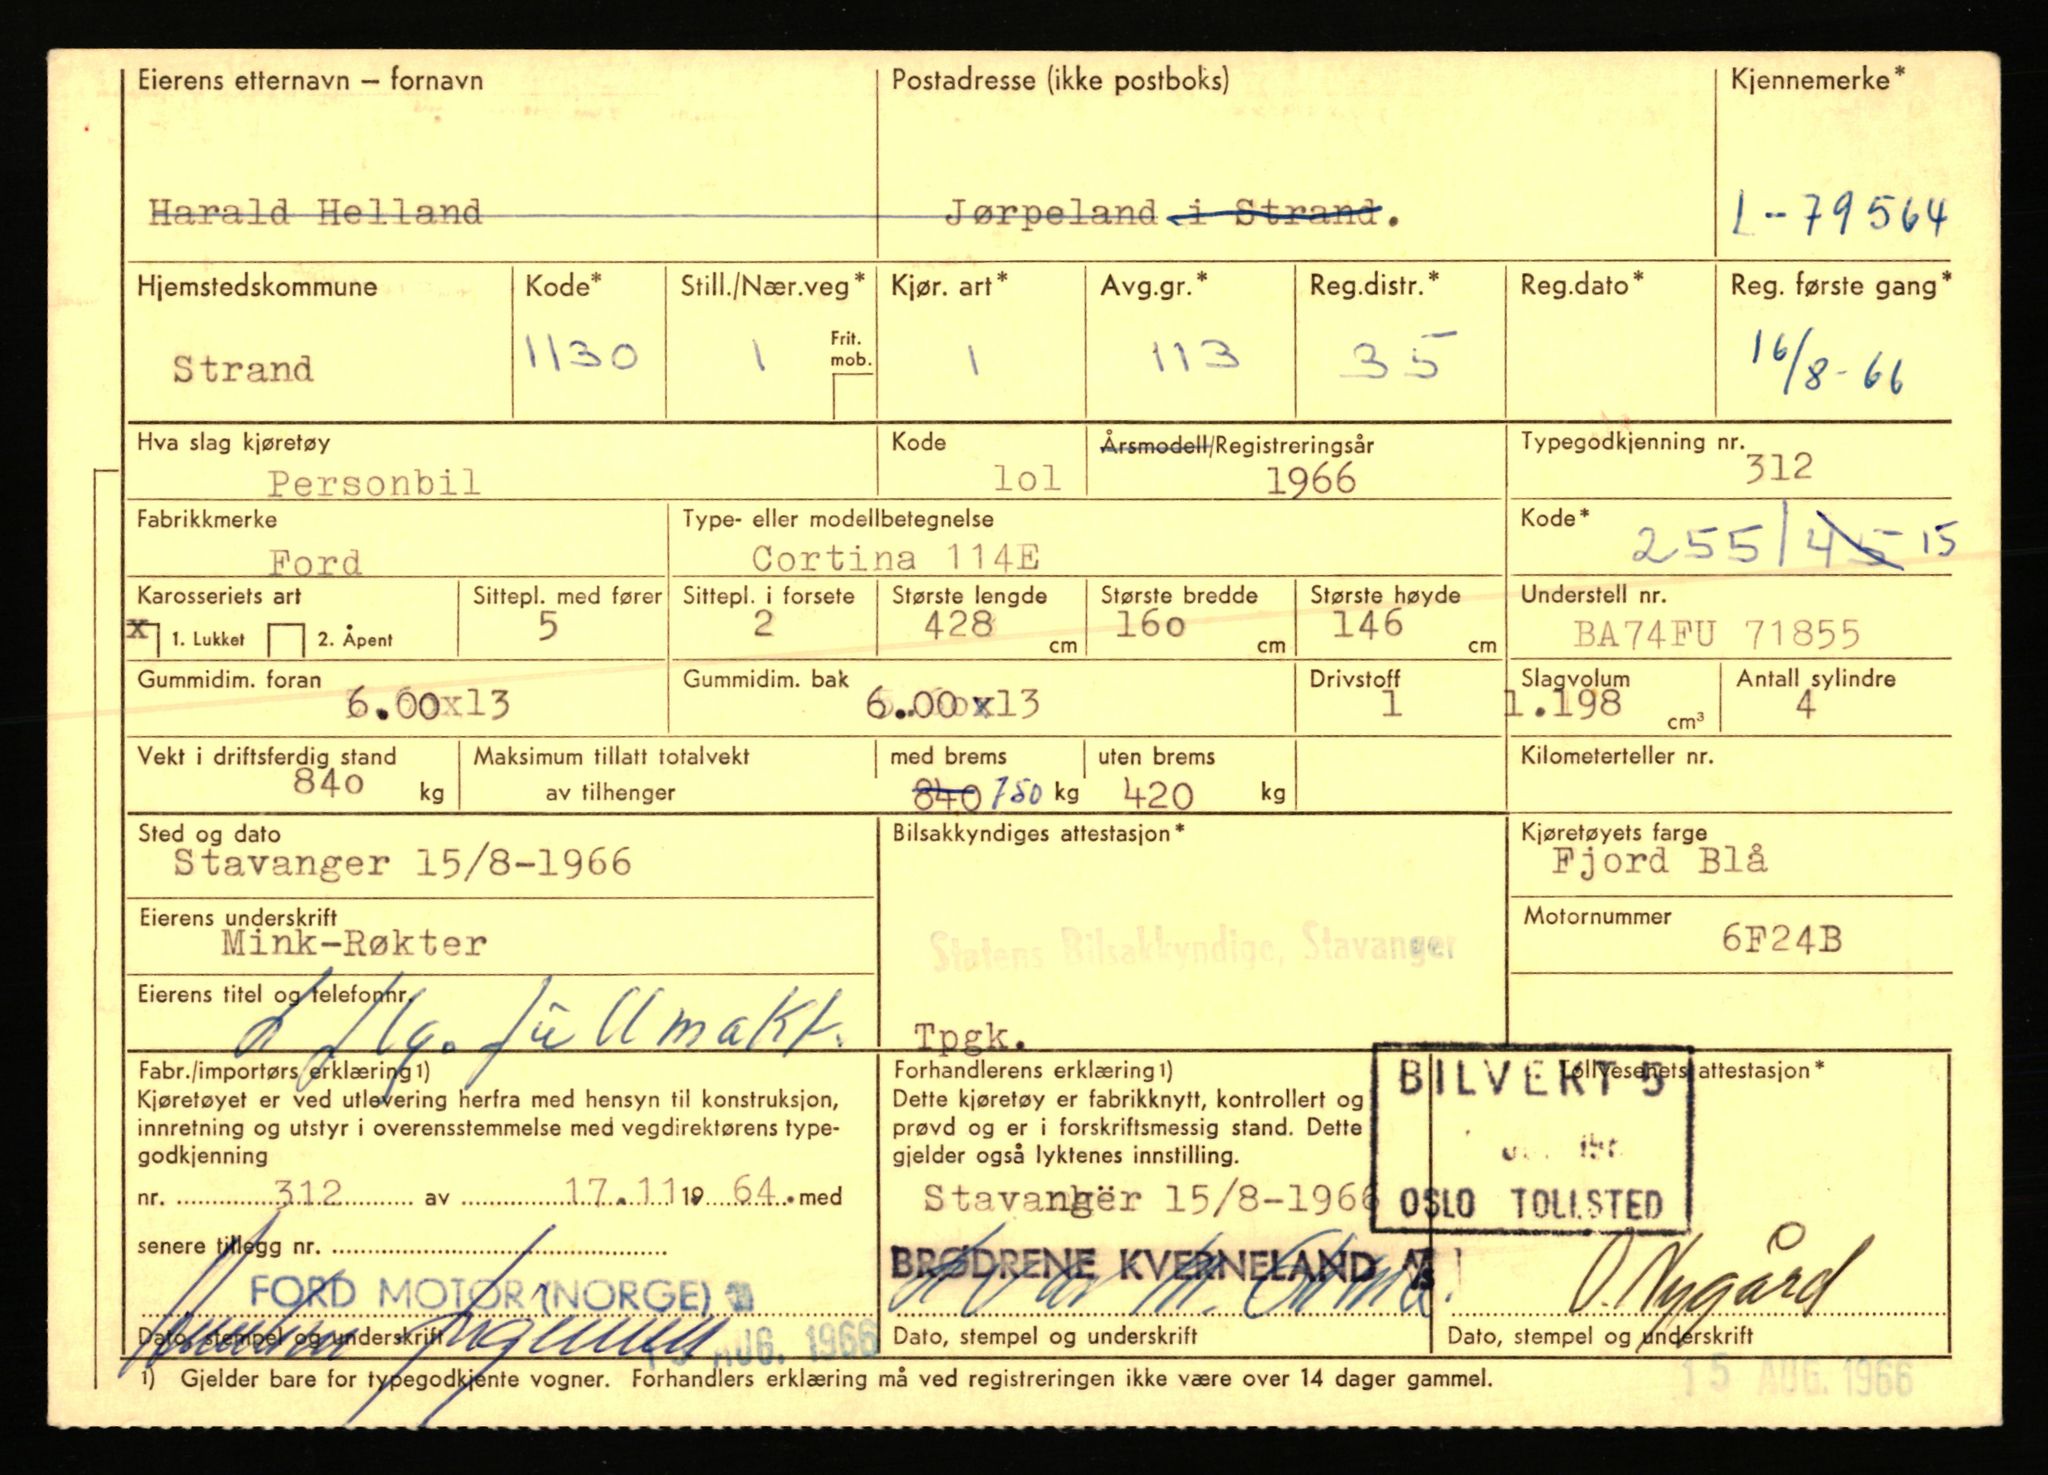 Eierens etternavn – fornavn Postadresse (ikke postboks) Kjennemerke*
Harald Helland Jørpeland i Strand. L-79564
Hjemstedskommune Kode* Still./Nær.veg* Kjør. art* Avg.gr.* Reg.distr.* Reg.dato* Reg. første gang*
Frit.
mob.
Strand 1130 1 1 113 35 16/8-66
Hva slag kjøretøy Kode Årsmodell/Registreringsår Typegodkjenning nr.
Personbil lol 1966 312
Fabrikkmerke Type- eller modellbetegnelse Kode*
Ford Cortina 114E 255/45 15
Karosseriets art Sittepl. med fører Sittepl. i forsete Største lengde Største bredde Største høyde Understell nr.
x 1. Lukket 2. Åpent 5 2 428 cm 160 cm 146 cm BA74FU 71855
Gummidim. foran Gummidim. bak Drivstoff Slagvolum Antall sylindre
6.00x13 6.00x13 1 1.198 cm³ 4
Vekt i driftsferdig stand Maksimum tillatt totalvekt med brems uten brems Kilometerteller nr.
840 kg av tilhenger 840 750 kg 420 kg
Sted og dato Bilsakkyndiges attestasjon* Kjøretøyets farge
Stavanger 15/8-1966 Fjord Blå
Eierens underskrift Motornummer
Mink-Røkter Statens Bilsakkyndige, Stavanger 6F24B
Eierens titel og telefonnr.
flg. fullmakt. Tpgk.
Fabr./importørs erklæring1) Forhandlerens erklæring1) Tollvesenets attestasjon*
BILVERT 5
Kjøretøyet er ved utlevering herfra med hensyn til konstruksjon, Dette kjøretøy er fabrikknytt, kontrollert og
innretning og utstyr i overensstemmelse med vegdirektørens type- prøvd og er i forskriftsmessig stand. Dette
godkjenning gjelder også lyktenes innstilling.
nr. 312 av 17.11 19 64. med Stavanger 15/8-1966 OSLO TOLLSTED
senere tillegg nr.
FORD MOTOR (NORGE) BRØDRENE KVERNELAND O. Nygård
Dato, stempel og underskrift AUG. 1966 Dato, stempel og underskrift Dato, stempel og underskrift
1) Gjelder bare for typegodkjente vogner. Forhandlers erklæring må ved registreringen ikke være over 14 dager gammel. 15 AUG. 1966